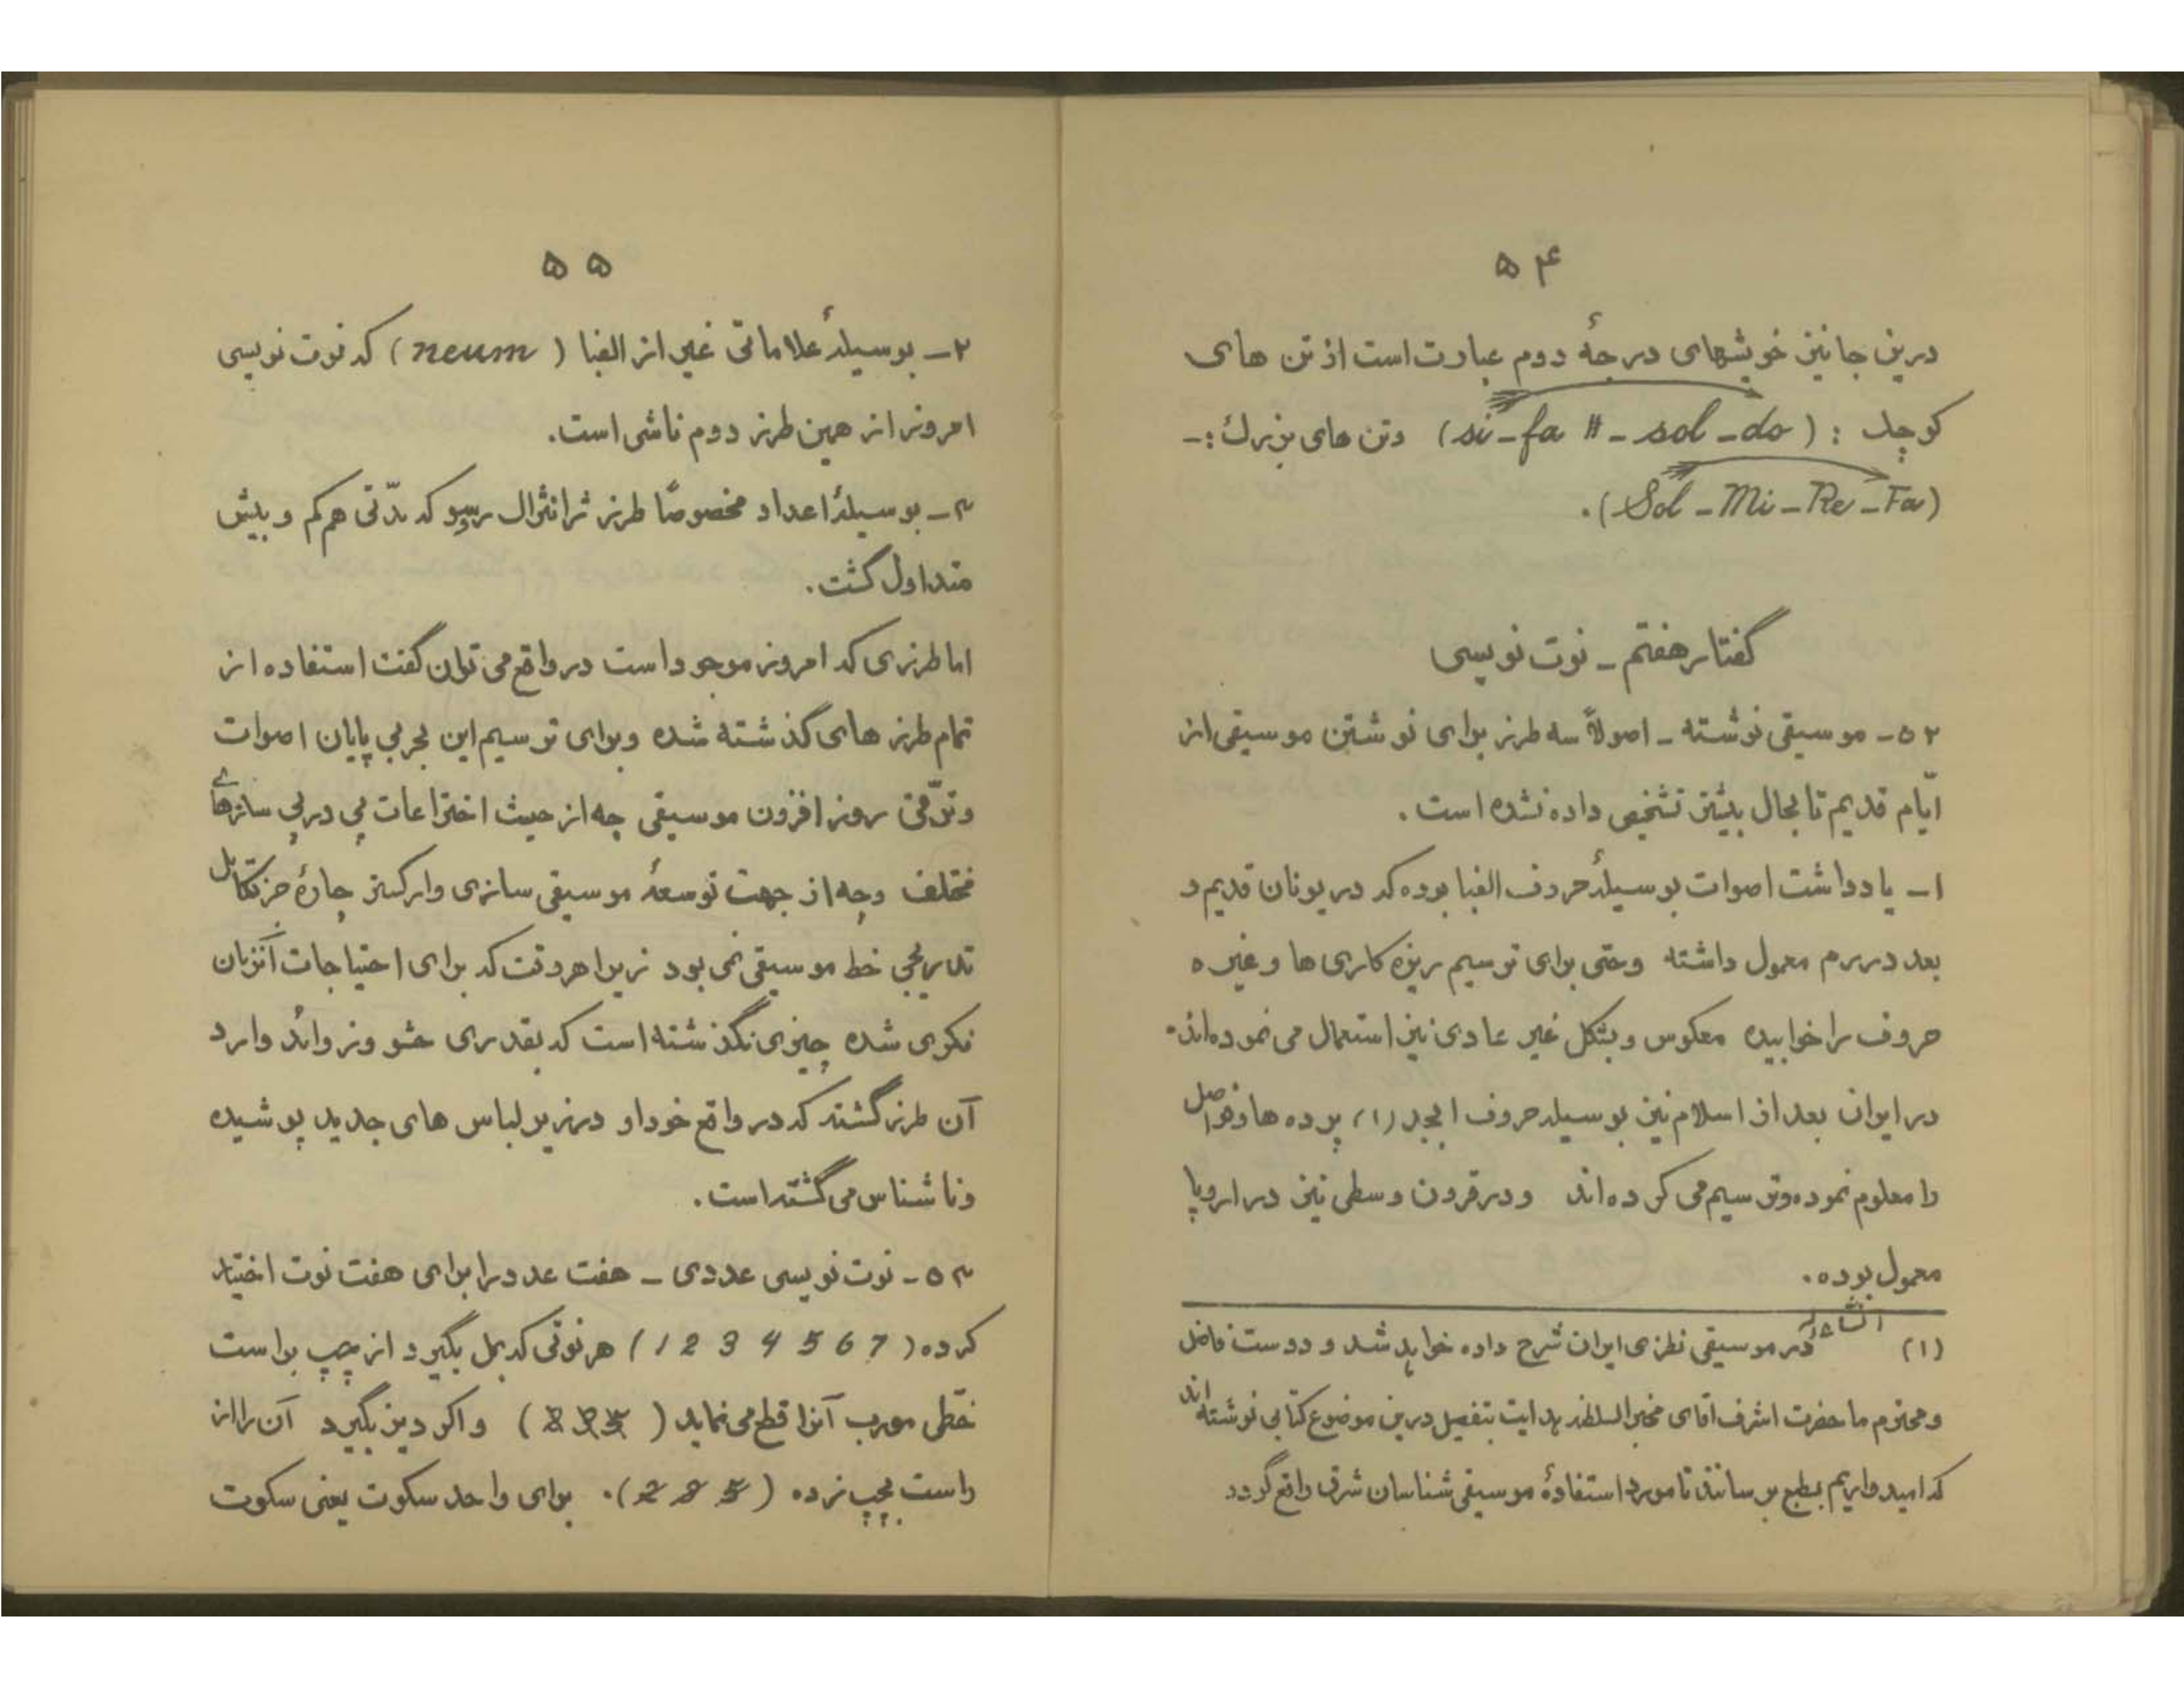 ۵۴
درین جا نیز خویشهای درجهٔ دوم عبارت است از تن های
کوچک : (si - fa # - sol - do) وتن های بزرک :-
(Sol - Mi - Re - Fa).
گفتار هفتم - نوت نویسی
۵۲ - موسیقی نوشته - اصولاً سه طرز برای نوشتن موسیقی از
ایّام قدیم تا بحال بیشتر تشخیص داده نشده است .
۱ - یادداشت اصوات بوسیلهٔ حروف الفبا بوده که در یونان قدیم و
بعد در رم معمول داشته وحتی برای ترسیم ریزه کاری ها و غیره
حروف را خوابیده معکوس و بشکل غیر عادی نیز استعمال می نموده‌اند.
در ایران بعد از اسلام نیز بوسیله حروف ابجد (۱) پرده ها و فواصل
را معلوم نموده وترسیم می کرده اند ودر قرون وسطی نیز در اروپا
معمول بوده .
(۱) انشاءالله در موسیقی نظری ایران شرح داده خواهد شد و دوست فاضل
و محترم ما حضرت اشرف اقای مخبرالسلطنه هدایت بتفصیل درین موضوع کتابی نوشته اند
که امیدواریم بطبع برسانند تا مورد استفادهٔ موسیقی شناسان شرق واقع گردد
۵۵
۲ - بوسیلهٔ علاماتی غیر از الفبا ( neum ) که نوت نویسی
امروز از همین طرز دوم ناشی است.
۳ - بوسیلهٔ اعداد مخصوصاً طرز ژان ژاک رسو که مدّتی هم کم و بیش
متداول گشت .
اما طرزی که امروز موجود است در واقع می توان گفت استفاده از
تمام طرز های گذشته شده وبرای ترسیم این بحر بی پایان اصوات
وترّقی روز افزون موسیقی چه از حیث اختراعات پی در پی سازهای
مختلف وچه از جهت توسعهٔ موسیقی سازی وارکستر چارهٔ جز تکامل
تدریجی خط موسیقی نمی بود زیرا هر وقت که برای احتیاجات آنزمان
فکری شده چیزی نگذشته است که بقدری حشو وزوائد وارد
آن طرز گشته که در واقع خود او در زیر لباس های جدید پوشیده
وناشناس می گشته است .
۵۳ - نوت نویسی عددی - هفت عدد را برای هفت نوت اختیار
کرده ( 1 2 3 4 5 6 7 ) هر نوتی که بمل بگیرد از چپ براست
خطی مورب آنرا قطع می نماید ( ) و اگر دیز بگیرد آن را از
راست بچپ زده ( 2 3 5 ). برای واحد سکوت یعنی سکوت